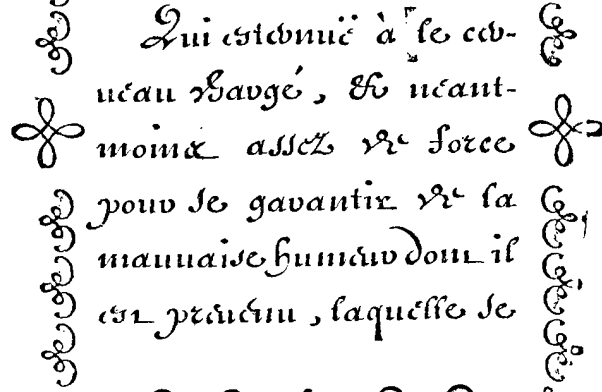 Qui esternuë à le cer-
ueau chargé, & neant-
moins assez de force
pour se garantir de la
mauuaise humeur dont il
est preuenu, laquelle se